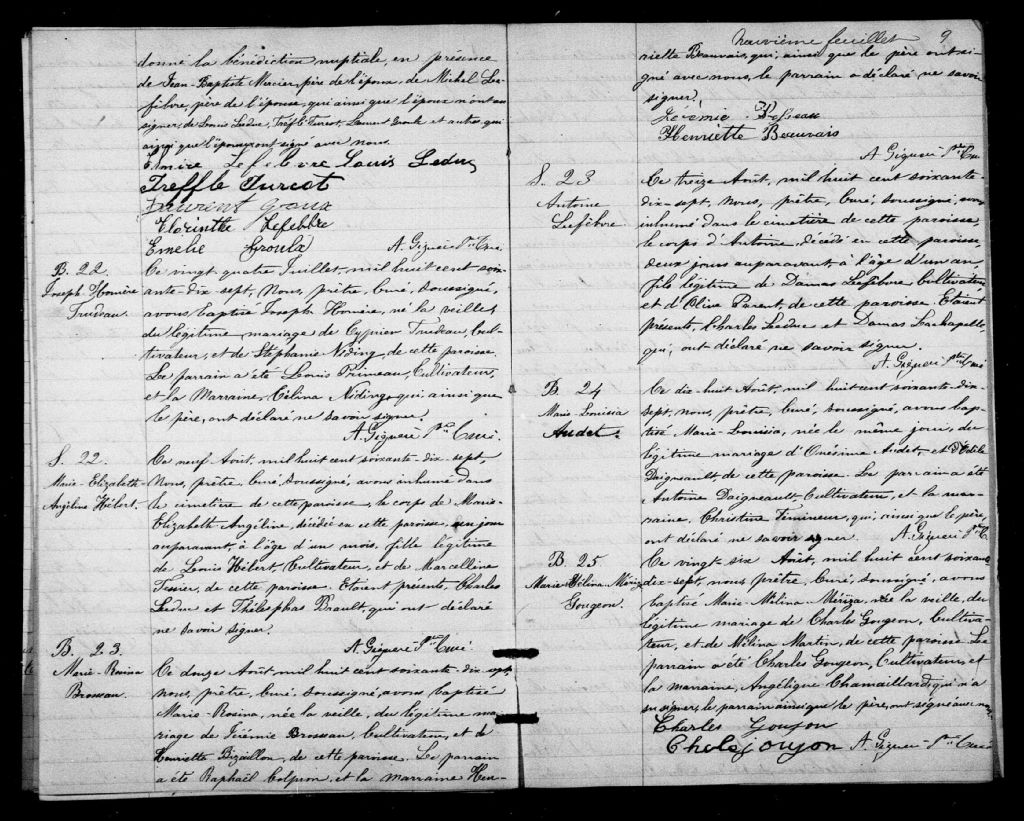 donné la bénédiction nuptiale, en présence
de Jean-Baptiste Mercier, père de l'époux, de Michel Le-
febvre, père de l'épouse, qui ainsi que l'époux n'ont su
signer, de Louis Leduc, Treflé Turcot, Laurent Groulx et autres qui
ainsi que l'épouse ont signé avec nous.
Elmire Lefebvre Louis Leduc
Treffle Turcot
Laurent Groux
Florinthe Lefebbre
Emelie Groulx A. Giguère Ptre Curé
B. 22.
Joseph Homère
Trudeau.
Ce vingt quatre Juillet, mil huit cent soix-
ante-dix sept, Nous, prêtre, curé, soussigné,
avons baptisé Joseph Homère, né la veille,
du légitime mariage de Cyprien Trudeau, Cul-
tivateur, et de Stéphanie Niding, de cette paroisse.
Le parrain a été Louis Primeau, Cultivateur,
et la Marraine, Célina Niding, qui, ainsi que
le père, ont déclaré ne savoir signer.
A. Giguère Ptre Curé
S. 22.
Marie-Elizabeth-
Angéline Hébert.
Ce neuf Août, mil huit cent soixante-dix-sept,
Nous, prêtre, curé, soussigné, avons inhumé dans
le cimetière de cette paroisse, le corps de Marie-
Elizabeth Angéline, décédée en cette paroisse, un jour
auparavant, à l'âge d'un mois, fille légitime
de Louis Hébert, Cultivateur, et de Marcelline
Tessier, de cette paroisse. Etaient présents, Charles
Leduc et Thélesphas Brault, qui ont déclaré
ne savoir signer.
A. Giguère Ptre Curé
B. 23.
Marie-Rosina
Brossau.
Ce douze Août, mil huit cent soixante-dix-sept,
nous, prêtre, curé, soussigné, avons baptisé
Marie-Rosina, née la veille, du légitime ma-
riage de Jérémie Brossau, Cultivateur, et de
Henriette Bizaillon, de cette paroisse. Le parrain
a été Raphaël Colpron, et la marraine Hen-
Neuvième feuillet 9
riette Beauvais, qui, ainsi que le père ont si-
gné avec nous, le parrain a déclaré ne savoir
signer.
Jérémie
Henriette Beauvais
A. Giguère Ptre Curé
S. 23
Antoine
Lefebvre.
Ce treize Août, mil huit cent soixante-
dix-sept, Nous, prêtre, curé, soussigné, avons
inhumé dans le cimetière de cette paroisse,
le corps d'Antoine, décédé en cette paroisse,
deux jours auparavant, à l'âge d'un an,
fils légitime de Damas Lefebvre, Cultivateur,
et d'Olive Parent, de cette paroisse. Etaient
présents, Charles Leduc et Damas Lachapelle,
qui, ont déclaré ne savoir signer.
A. Giguère Ptre Curé
B. 24
Marie-Louisia
Audet.
Ce dix-huit Août, mil huit cent soixante-dix-
sept, nous, prêtre, curé, soussigné, avons bap-
tisé Marie-Louisia, née le même jour, du
légitime mariage d'Onésime Audet, et d'Odile
Daigneault, de cette paroisse. Le parrain a été
Antoine Daigneault, Cultivateur, et la mar-
raine, Christine, qui, ainsi que le père,
ont déclaré ne savoir signer. A. Giguère Ptre C.
B. 25
Marie-Mélina-Mériza
Gougeon.
Ce vingt-six Août, mil huit cent soixante
dix-sept, nous, prêtre, curé, soussigné, avons
baptisé Marie-Mélina-Mériza, née la veille, du
légitime mariage de Charles Gougeon, Cultiva-
teur, et de Mélina Martin, de cette paroisse. Le
parrain a été Charles Gougeon, Cultivateur, et
la marraine, Angélique Chamaillard, qui n'a
su signer, le parrain ainsi que le père, ont signé avec nous.
Charles Goujon
Chals goujon A. Giguère Ptre Curé